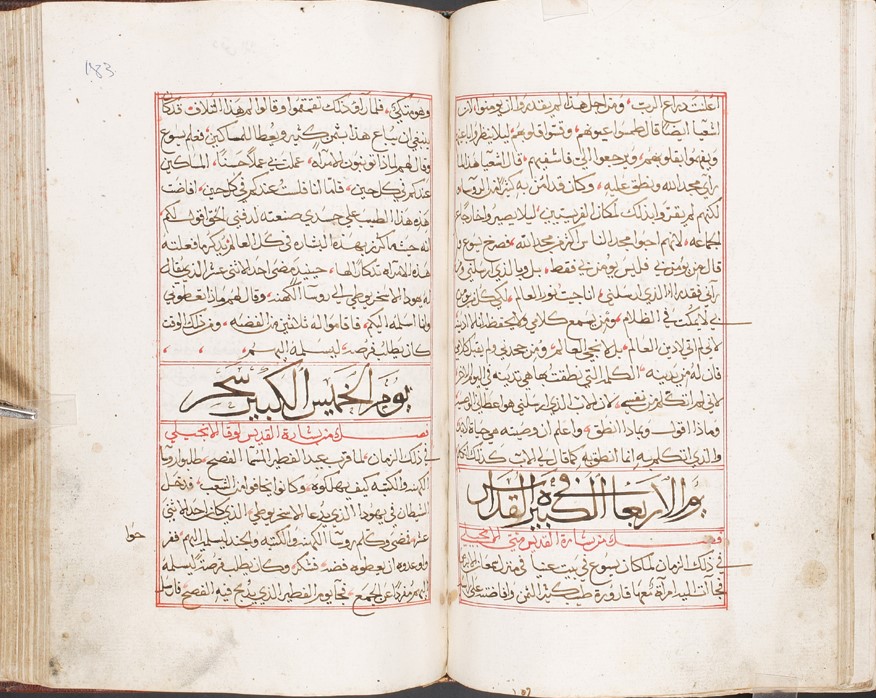 اعلنت دراع الرب، ومن اجل هذا لم يقدروا ان يومنوا لان
اشعيا ايضا قال طمسوا عيونهم، وقسوا قلوبهم، ليلا ينظروا
ويفهموا بقلوبهم، ويرجعوا الي فاشفيهم، قال اشعيا هذا لما
راي مجد الله ونطق عليه، وكان قد امن به كثير من الروسا و
لكنهم لم يقروا بذلك لمكان الفريسيين، ليلا يصيروا خارجا
الجماعه، لانهم احبوا مجد الناس اكثر من مجد الله، فصرخ يسوع و
قال من يومن بي، فليس يومن بي فقط، بل وبالذي ارسلني
راني فقد راي الذي ارسلني، انا جيت نور العالم، لكي كل من يومن
بي لا يمكث في الظلام، ومن يسمع كلامي ولا يحفظه انا
لاني لم اتي لادين العالم، بل لانجي العالم، ومن جحدني ولم يقبل
فان له من يدينه، الكلمه التي نطقت بها هي تدينه في اليوم
لاني لم اتكلم من نفسي، لان الاب الذي ارسلني هو اعطاني
فماذا اقول وبماذا انطق، واعلم ان وصيته هي حياة
والذي اتكلم به انا انطق به كما قال لي الاب كذلك
يوم الاربعا الكبير في القداس
فصل من بشارة القديس متي الانجيلي
في ذلك الزمان لما كان يسوع في بيت عنيا في منزل سمعان
فجات اليه امراه معها قارورة طيب كثير الثمن وافاضته علي
183
وهو متكي، فلما راو ذلك تقمقموا وقالوا لم هذا التلاف قد كان
ينبغي ان يباع هذا بثمن كثير ويعطا للمساكين، فعلم يسوع
وقال لهم لماذا تونبون الامراه، عملت بي عملا حسنا، المساكين
عندكم في كل حين، فاما انا فلست عندكم في كل حين، افاضت
هذه هذا الطيب علي جسدي صنعته لدفني الحق اقول لكم
انه حيثما كرز بهذه البشاره في كل العالم ويذكر ما فعلته
هذه الامراه تذكارا لها، حينيد مضي احد الاثني عشر الذي يقال
له يهودا الاسخريوطي الي روسا الكهنه، وقال لهم ماذا تعطوني
وانا اسلمه اليكم، فاقاموا له ثلاثين من الفضه، ومن ذلك الوقت
كان يطلب فرصه ليسلمه اليهم
يوم الخميس الكبير سحر
فصل من بشارة القديس لوقا الانجيلي
في ذلك الزمان، لما قرب عيد الفطير المسما الفصح، طلبوا روسا
الكهنه والكتبه كيف يهلكوه، وكانوا يخافوا من الشعب، فدخل
الشيطان في يهودا الذي يدعا الاسخريوطي، الذي كان احد الاثني
عشر، فمضي وكلم روسا الكهنه والكتبه والجند ليسلمه اليهم، ففر
حوا
واوعدوه ان يعطوه فضه، فشكر، وكان يطلب فرصه ليسلمه
اليهم مفردا عن الجمع، فجا يوم الفطير الذي يذبح فيه الفصح، فارسل